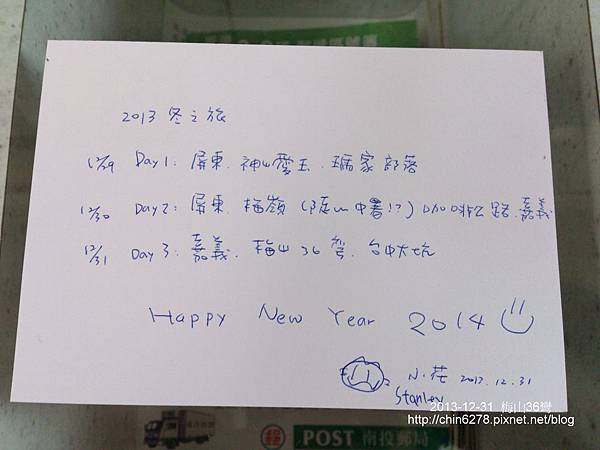 2013 冬之旅
12/29 Day 1: 屏東. 神山愛玉. 瑪家部落
12/30 Day 2: 屏東. 梅嶺 (隨 中暑!?) 咖啡公路. 嘉義
12/31 Day 3: 嘉義. 梅山 36 彎. 台中大坑
Happy New Year 2014
小花 2013.12.31
Stanley
2013-12-31 梅山36彎
http://chin6278.pixnet.net/blog
POST 南投郵局